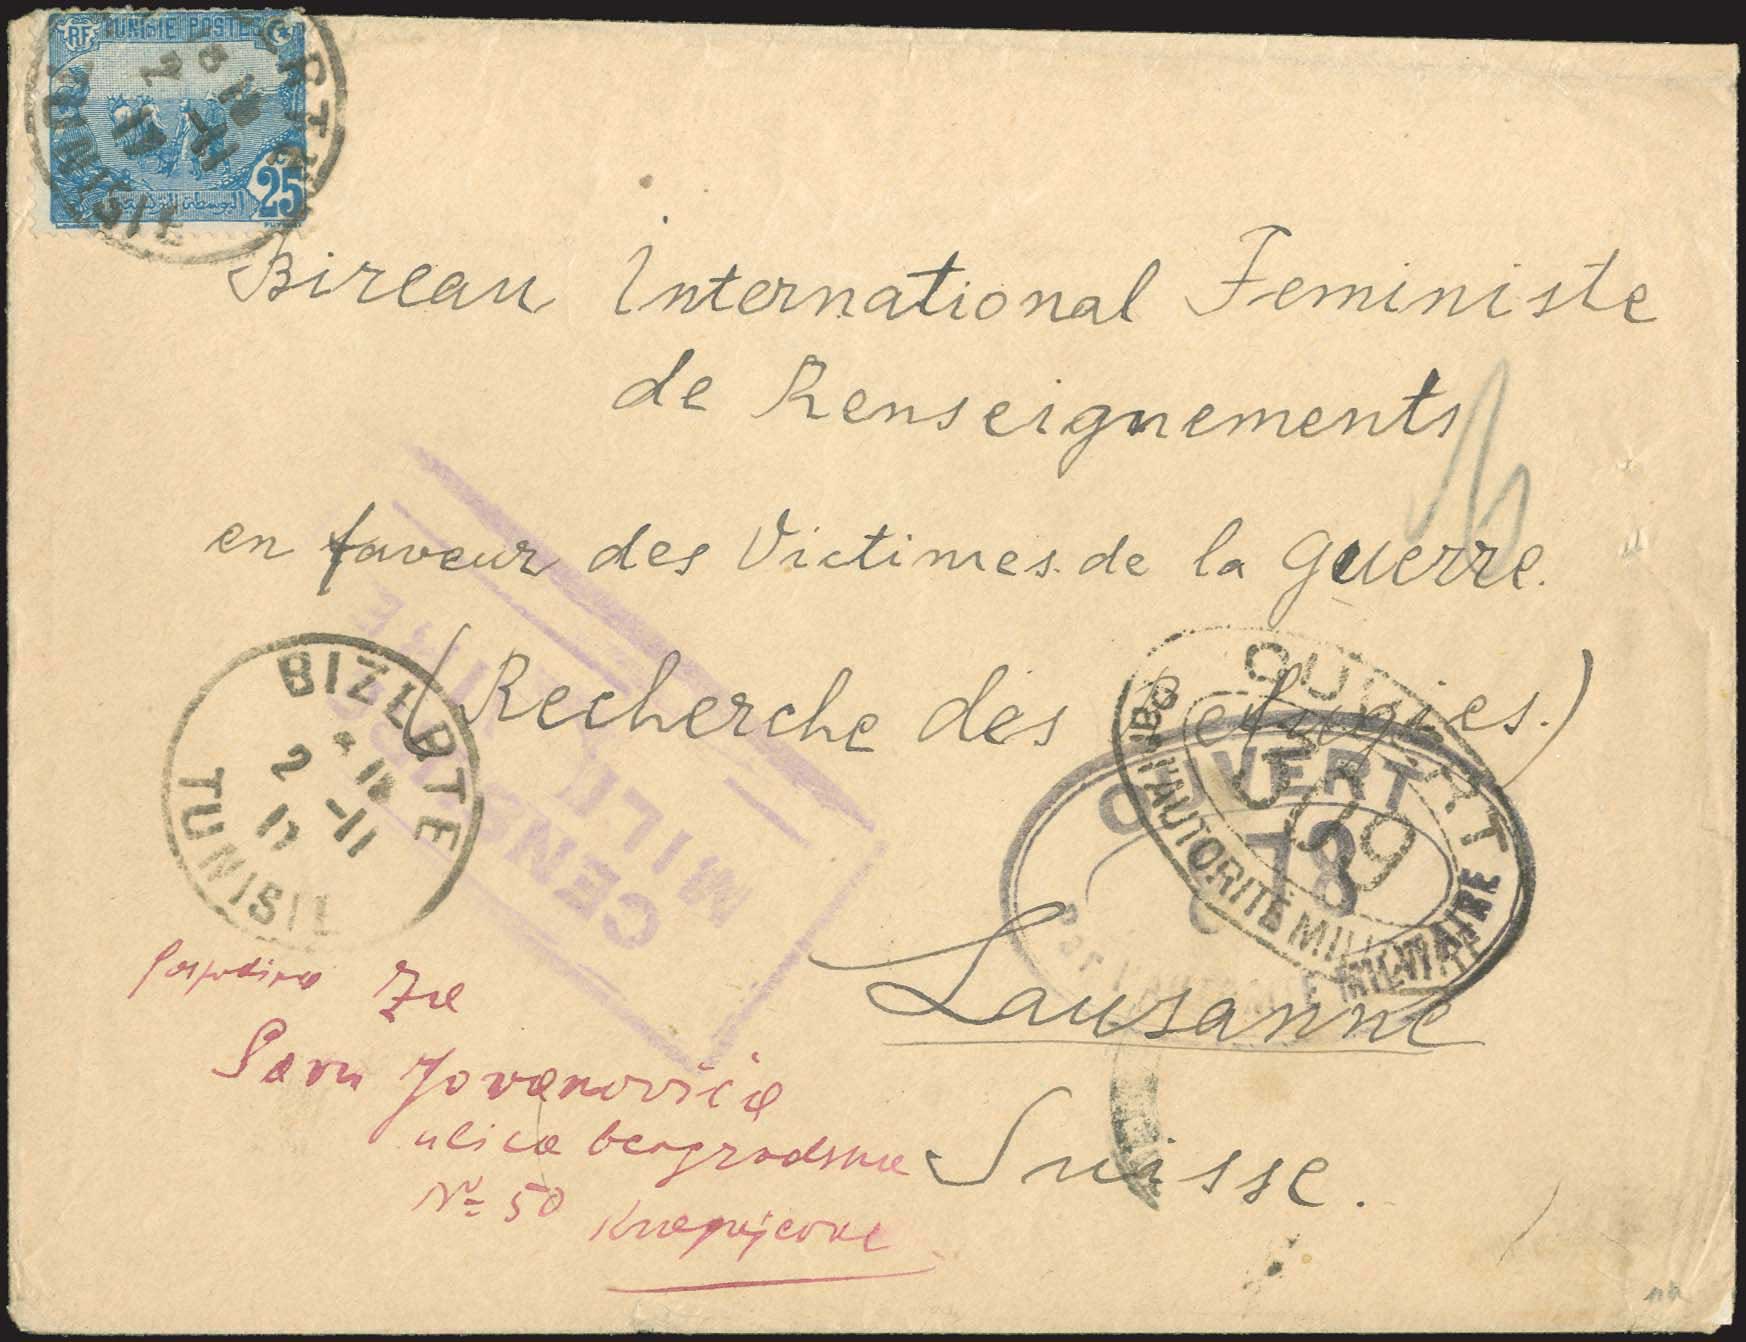 RF TUNISIE POSTES
25
Bireau International Feministe
de Renseignements
en faveur des Victimes de la guerre.
(Recherche des Refugies.)
BIZERTE
2 -11
17
TUNISIE
CENSURE
MILITAIRE
OUVERT
099
PAR L'AUTORITÉ MILITAIRE
OUVERT
78
PAR L'AUTORITÉ MILITAIRE
Lausanne
Suisse.
Za
Savu Jovanovića
ulica beogradska
No 50